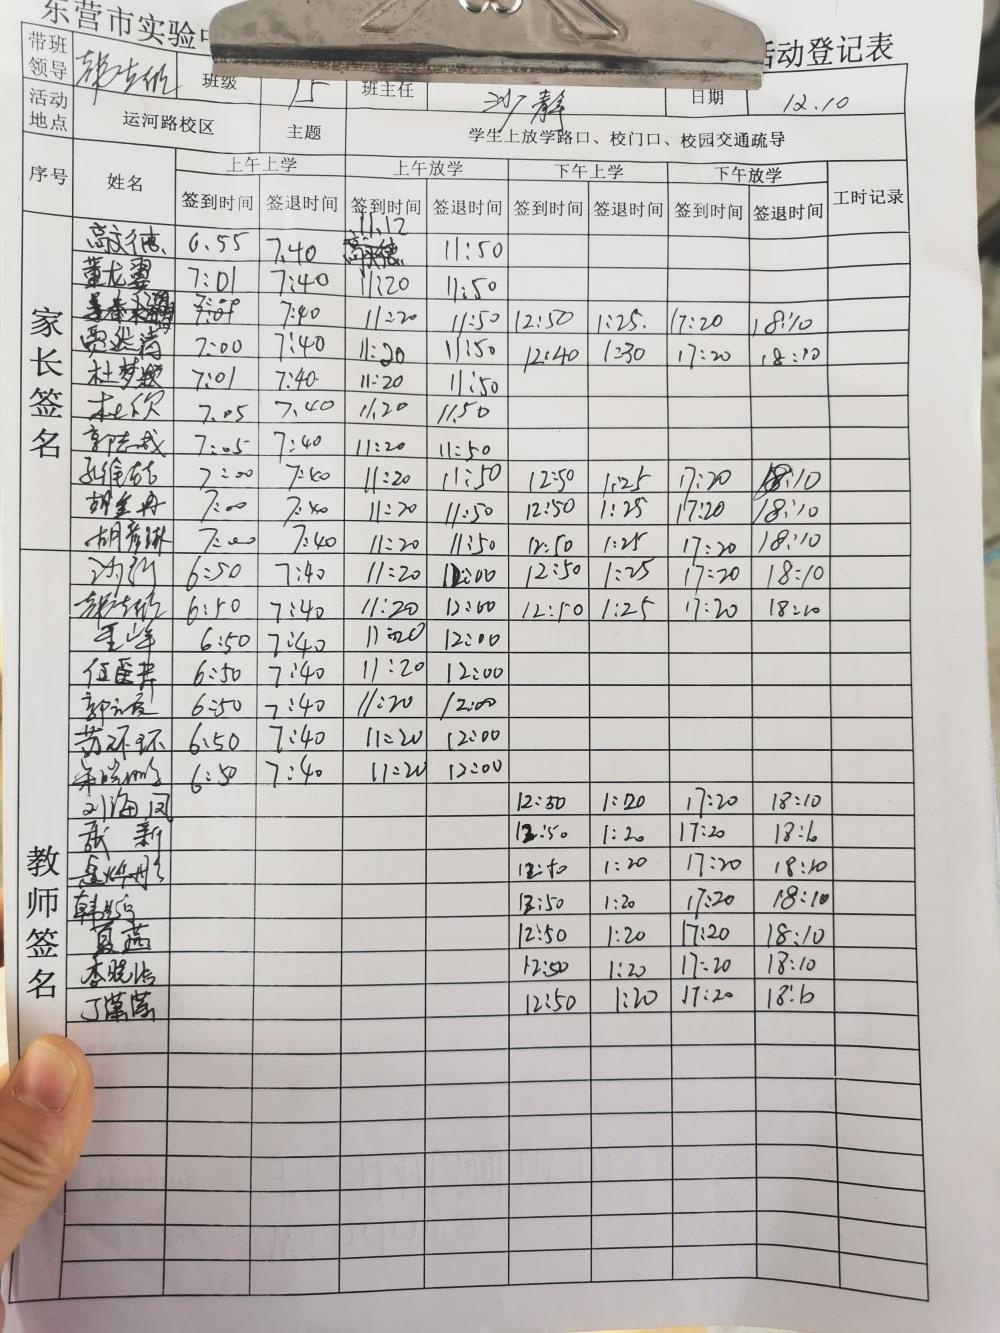 东营市实验中
活动登记表
带班领导 班级 15 班主任 沙静 日期 12.10
活动地点 运河路校区 主题 学生上放学路口、校门口、校园交通疏导
序号 姓名 上午上学 上午放学 下午上学 下午放学 工时记录
签到时间 签退时间 签到时间 签退时间 签到时间 签退时间 签到时间 签退时间
家长签名
11.12
6.55 7.40 11:50
董龙翠 7:01 7:40 11:20 11:50
7:40 11:20 11:50 12:50 1:25. 17:20 18:10
7:00 7:40 11:20 11:50 12:40 1:30 17:20 18:10
杜梦 7:01 7:40 11:20 11:50
杜欣 7.05 7.40 11.20 11.50
郭志成 7:05 7:40 11:20 11:50
7:00 7:40 11:20 11:50 12:50 1:25 17:20 18:10
胡金丹 7:00 7:40 11:20 11:50 12:50 1:25 17:20 18:10
胡彦琳 7:00 7:40 11:20 11:50 12:50 1:25 17:20 18:10
教师签名
6:50 7:40 11:20 12:00 12:50 1:25 17:20 18:10
6:50 7:40 11:20 12:00 12:50 1:25 17:20 18:10
王峰 6:50 7:40 11:20 12:00
任医井 6:50 7:40 11:20 12:00
6:50 7:40 11:20 12:00
苏环环 6:50 7:40 11:20 12:00
宋晓鹏 6:50 7:40 11:20 12:00
刘海凤 12:50 1:20 17:20 18:10
张新 12:50 1:20 17:20 18:10
12:50 1:20 17:20 18:10
韩 12:50 1:20 17:20 18:10
夏燕 12:50 1:20 17:20 18:10
李晓洁 12:50 1:20 17:20 18:10
丁潇潇 12:50 1:20 17:20 18:10